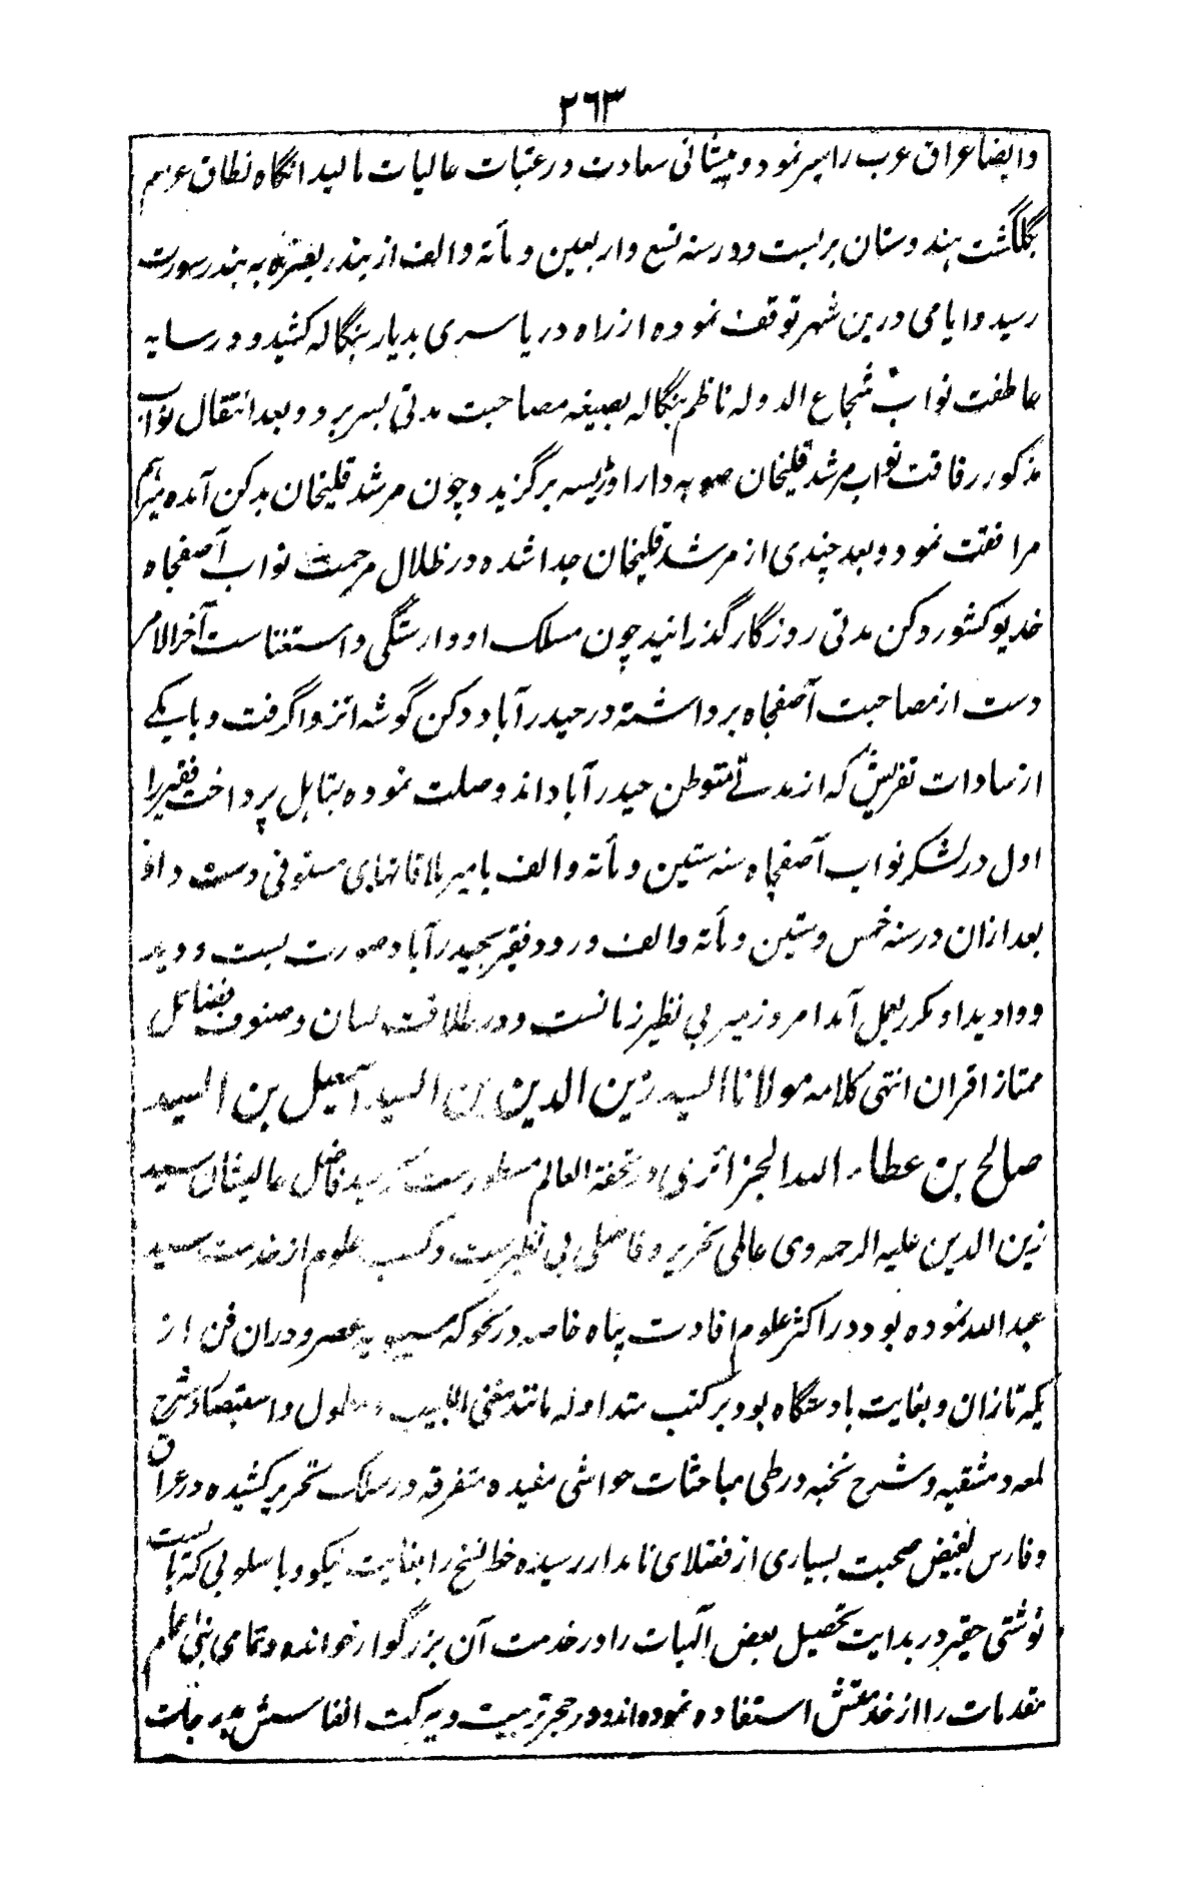 ٢٦٣
وایضا عراق عرب را سیر نمود و پیشانی سعادت در عتبات عالیات مالید انگاه نطاق عزم
بگلگشت هندوستان بر بست و در سنه تسع و اربعین و مأته و الف از بندر بصره به بندر سورت
رسید و ایامی درین شهر توقف نموده از راه دریا سری بدیار بنگاله کشید و در سایه
عاطفت نواب شجاع الدوله ناظم بنگاله بصیغه مصاحبت مدتی بسر برد و بعد انتقال نواب
مذکور رفاقت نواب مرشد قلیخان صوبه دار اوڑیسه برگزید و چون مرشد قلیخان بدکن آمده میر هم
مرافقت نمود و بعد چندی از مرشد قلیخان جدا شده در ظلال مرحمت نواب آصفجاه
خدیو کشور دکن مدتی روزگار گذرانید چون مسلک او وارستگی و استغناست آخرالامر
دست از مصاحبت آصفجاه برداشته در حیدرآباد دکن گوشه انزوا گرفت و با یکے
از سادات تفریش که از مدتے متوطن حیدرآباد اند وصلت نموده بتاهل پرداخت فقیر را
اول در لشکر نواب آصفجاه سنه ستین و مأته و الف با میر ملاقاتهای مستوفی دست داد
بعد ازان در سنه خمس و ستین و مأته و الف ورود فقیر بحیدرآباد صورت بست و دید
و وادید او مکرر بعمل آمد امروز میر بی نظیر زمانست و در طلاقت لسان و صنوف فضائل
ممتاز اقران انتهی کلامه مولانا السید زین الدین بن السید اسمعیل بن السید
صالح بن عطاء الله الجزائری در تحفة العالم مسطورست که سید فاضل عالیشان سید
زین الدین علیه الرحمه وی عالمی نحریر و فاضلی بی نظیرست و کسب علوم از خدمت سید
عبد الله نموده بود در اکثر علوم افادت پناه خاصه در نحو که سیبویه عصر و در ان فن از
یکه تازان و بغایت با دستگاه بود بر کتب متداوله مانند مغنی اللبیب و مطول و استبصار و شرح
لمعه دمشقیه و شرح نخبه در طی مباحثات حواشی مفیده متفرقه در سلک تحریر کشیده در عراق
و فارس بفیض صحبت بسیاری از فضلای نامدار رسیده خط نسخ را بغایت نیکو و باسلوبی که بایست
نوشتی حقیر در بدایت تحصیل بعض آلهیات را در خدمت آن بزرگوار خوانده و تمامی بنی عم
مقدمات را از خدمتش استفاده نموده اند و در حجر تربیت و برکت انفاسش بدرجات